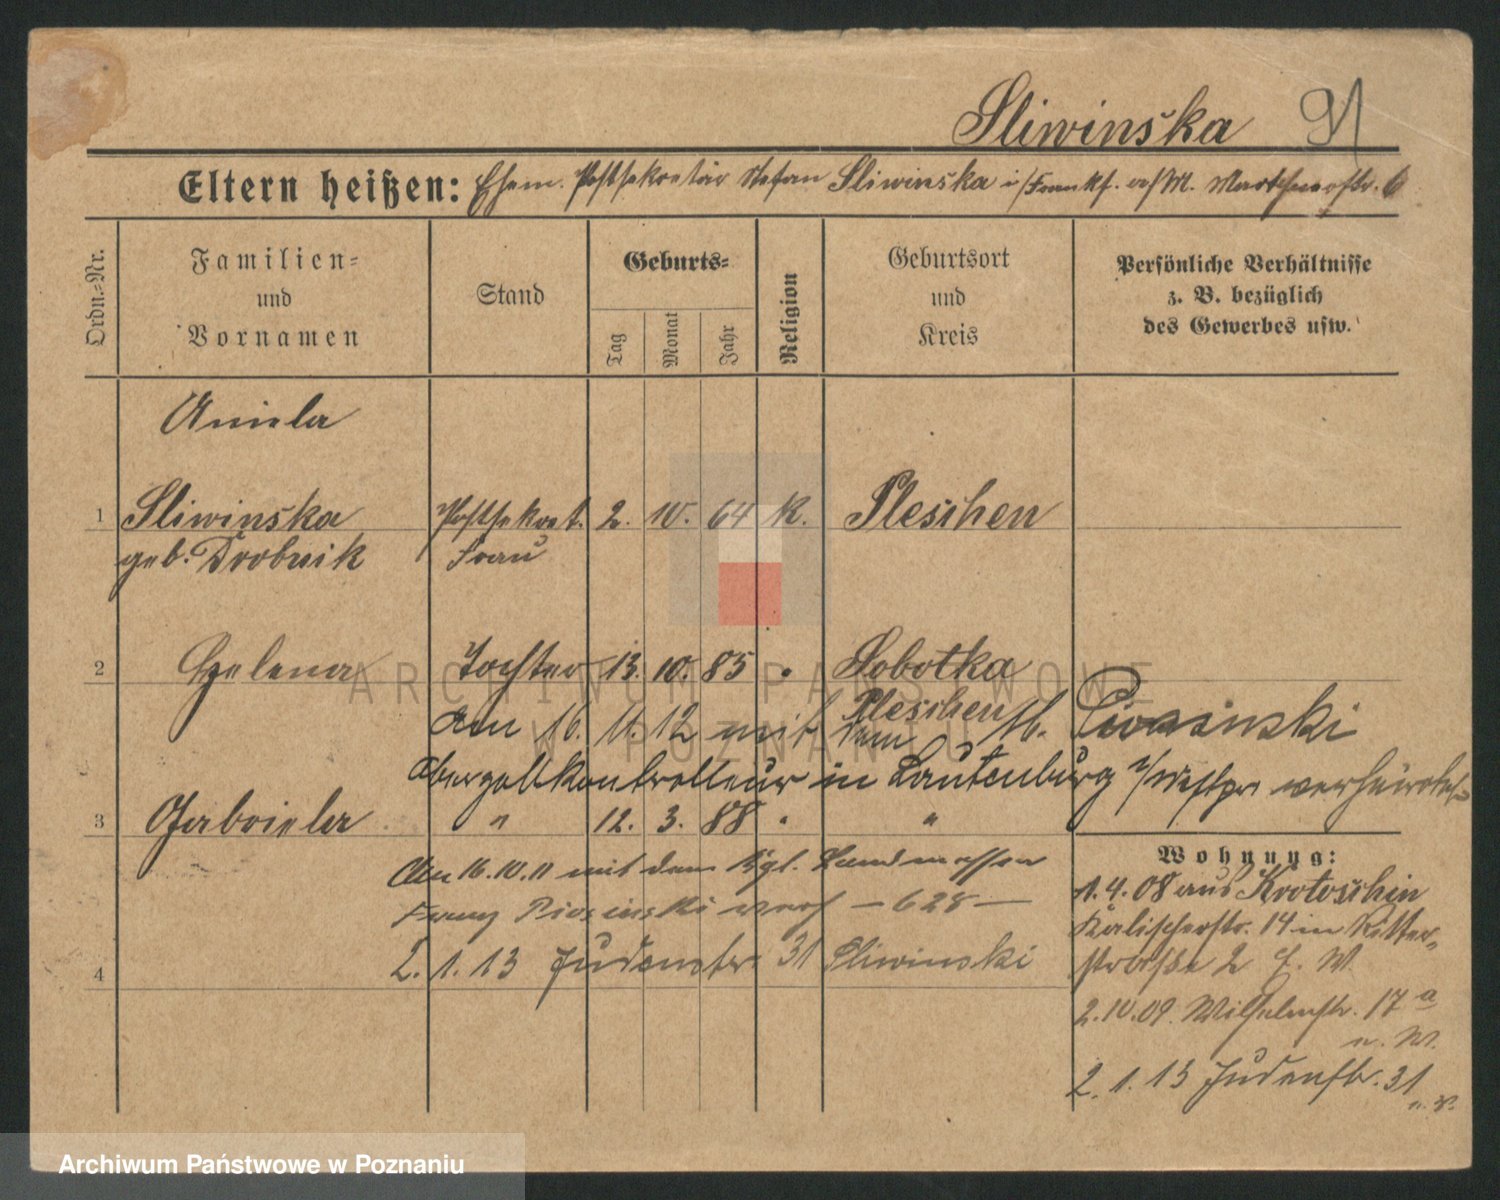 Sliwinska
Eltern heißen: Ehem. Postsekretär Stefan Sliwinska i/Frankf. a/M.
Ordn.-Nr.
Familien-
und
Vornamen
Stand
Geburts-
Tag
Monat
Jahr
Religion
Geburtsort
und
Kreis
Persönliche Verhältnisse
z. B. bezüglich
des Gewerbes usw.
Aniela
1 Sliwinska Postsekret. 2. 10. 64 K. Pleschen
geb. Drobnik Frau
2 Helena Tochter 13. 10. 85 " Sobotka
Pleschen
Am 16. 11. 12 mit dem St. Piosinski
Oberzollkontrolleur in Lautenburg i/Westpr. verheiratet
3 Gabriela " 12. 3. 88 " "
Am 16.10.11 mit dem Kgl. Landmesser
Franz Piosinski verh — 628 —
4 2. 1. 13 Judenstr. 31 Sliwinski
Wohnung:
1. 4. 08 aus Krotoschin
Kalischerstr. 14 in Ritter-
straße 2 b. W.
2.10.09. Wilhelmstr. 17 a
n. W.
2. 1. 13 Judenstr. 31
ARCHIWUM PAŃSTWOWE
W POZNANIU
Archiwum Państwowe w Poznaniu